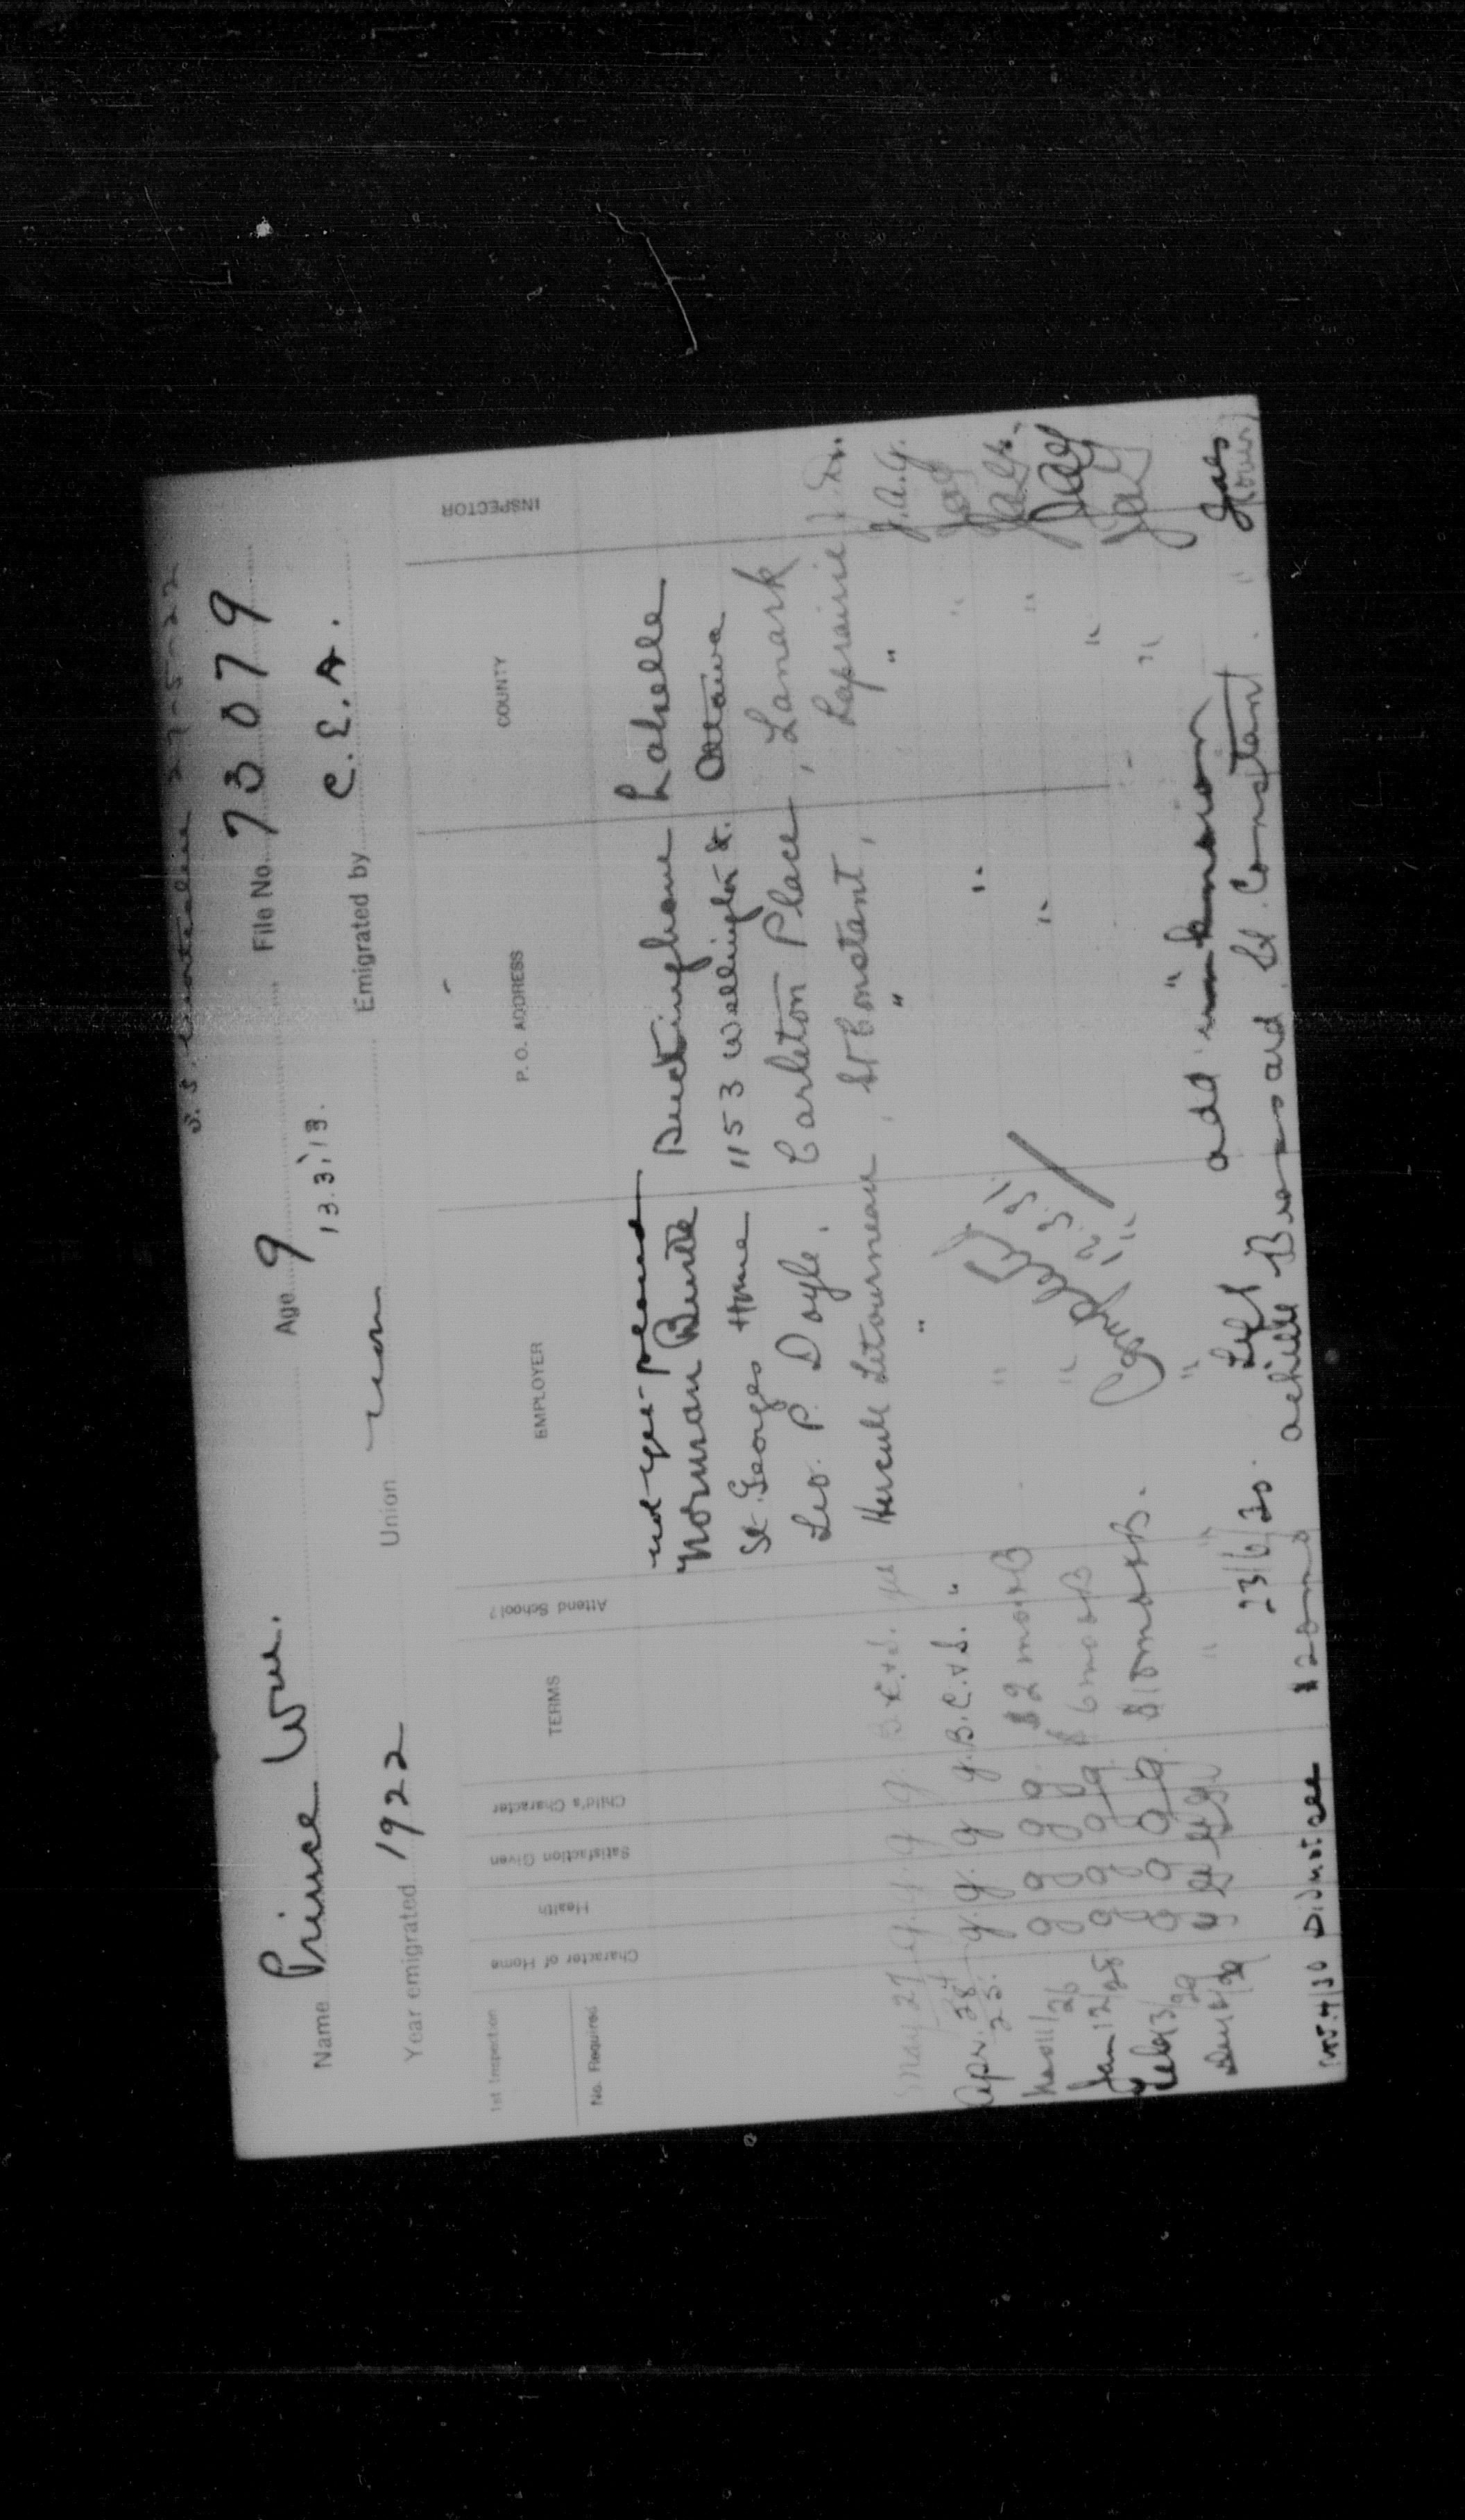 S.S. 27-5-22
Name Prince Wm. Age 9 File No. 73079
13.3.13.
Year emigrated 1922 Union Emigrated by C.E.A.
1st Inspection
No. Required
Character of Home
Health
Satisfaction Given
Child's Character
TERMS
Attend School?
EMPLOYER
P. O. ADDRESS
COUNTY
INSPECTOR
not yet placed
Norman Buckingham Labelle
St. Georges Home 1153 Wellington St. Ottawa
Leo. P. Doyle, Carleton Place, Lanark
May 27 g. g. g. g. B.C.&S. yes Hercule Letourneau, St Constant, Laprairie
Apr. 28 g. g. g g. B.C.&S. " " " " J.A.G.
25.
Nov 11/26 g g g g. $2 mo & B " " " JAG
Jan 12/28 g g g g. $6 mo & B " " " JAG
Feb 13/29 g g g g. $10 mo & B. " " JAG
Dec 12/29 g g g g " " " " " JAG
23/6/30. Left add unknown
Nov. 4/30 Did not see $20 mo Achille Brossard, St. Constant.